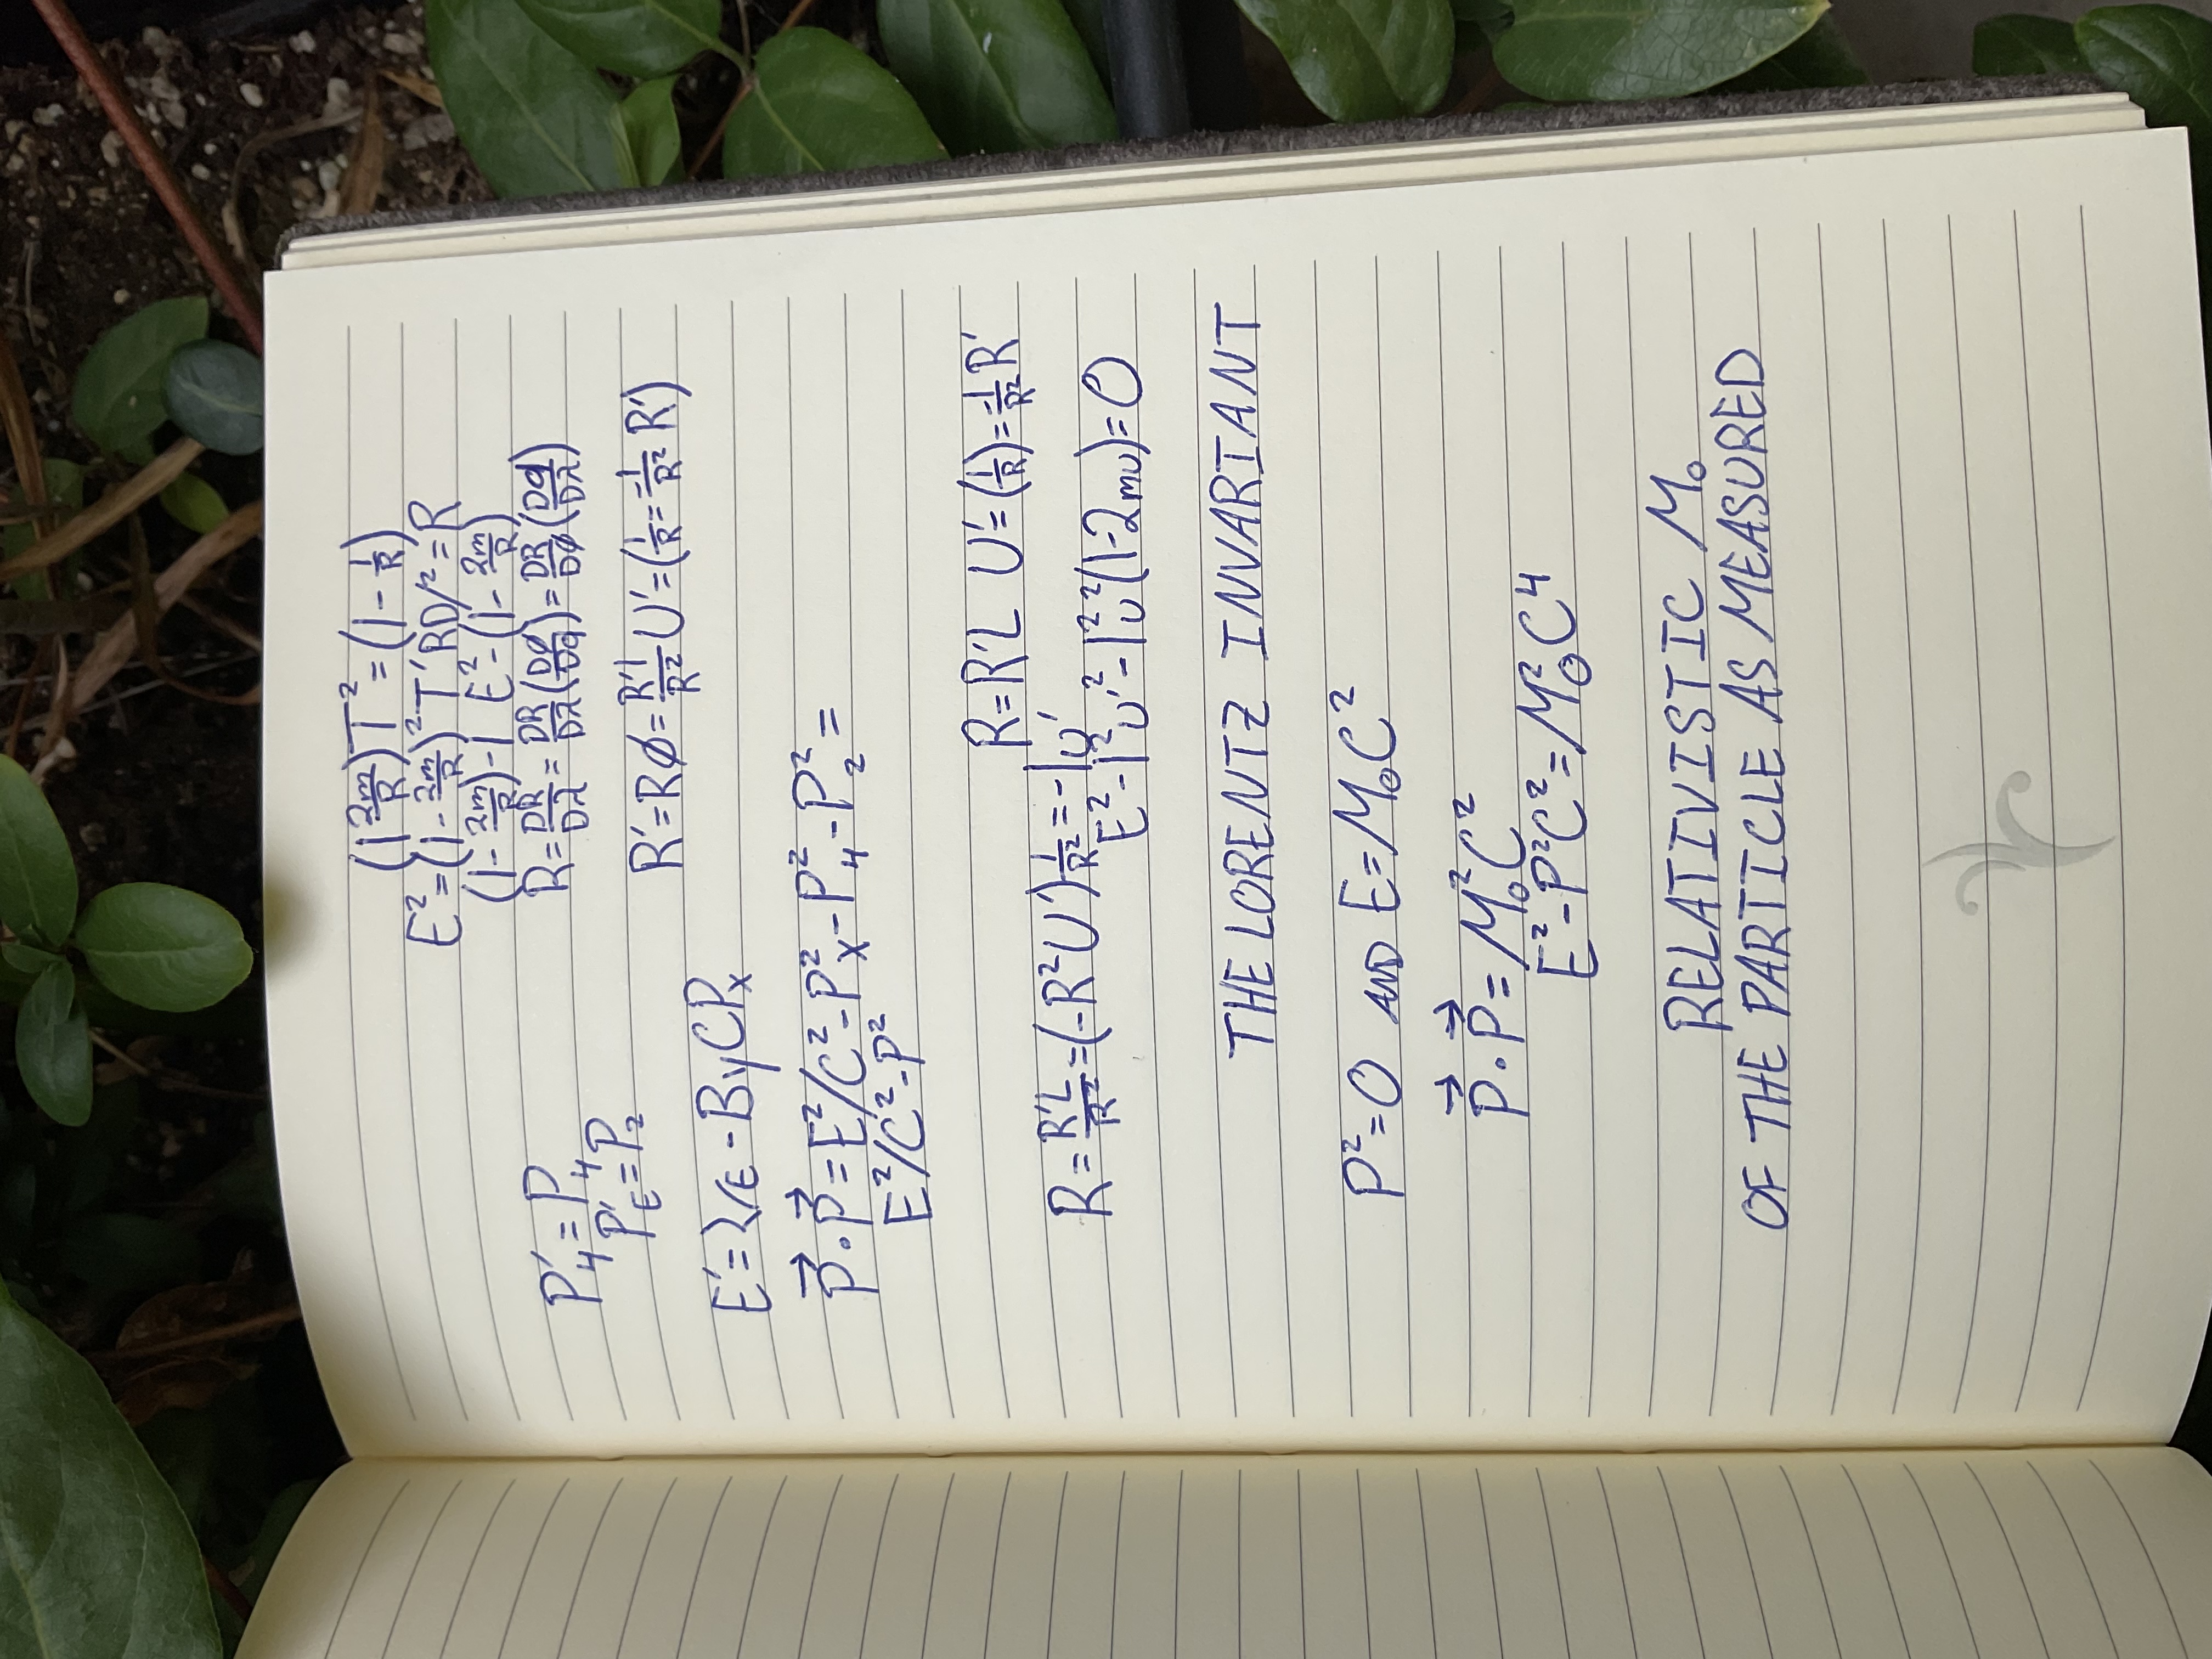 (1 2m/R)T² = (1 - 1/R)
E² = (1 - 2m/R)² T′RD/² = R
(1 - 2m/R) - 1 E² - (1 - 2m/R)
P′₄ = P₄
R = DR/Dλ = DR/Dλ (Dø/Dq) = DR/Dø (Dq/Dλ)
P′ᴇ = P₂
R′ = Rø = R′1/R² U′ = (1/R = -1/R² R′)
E′ = - ByCPₓ
P⃗ · P⃗ = E²/C² - Pₓ² - P₄² - P₂² =
E²/C² - P²
R = R′L U′ = (1/R) = -1/R² R′
R = R′L/R² = (-R²U′) 1/R² = -1u′
E² - 1²u′² - 1²u²(1 - 2mu) = 0
THE LORENTZ INVARIANT
P² = 0 AND E = M₀C²
P⃗ · P⃗ = M₀²C²
E² - P²C² = M₀²C⁴
RELATIVISTIC M₀
OF THE PARTICLE AS MEASURED